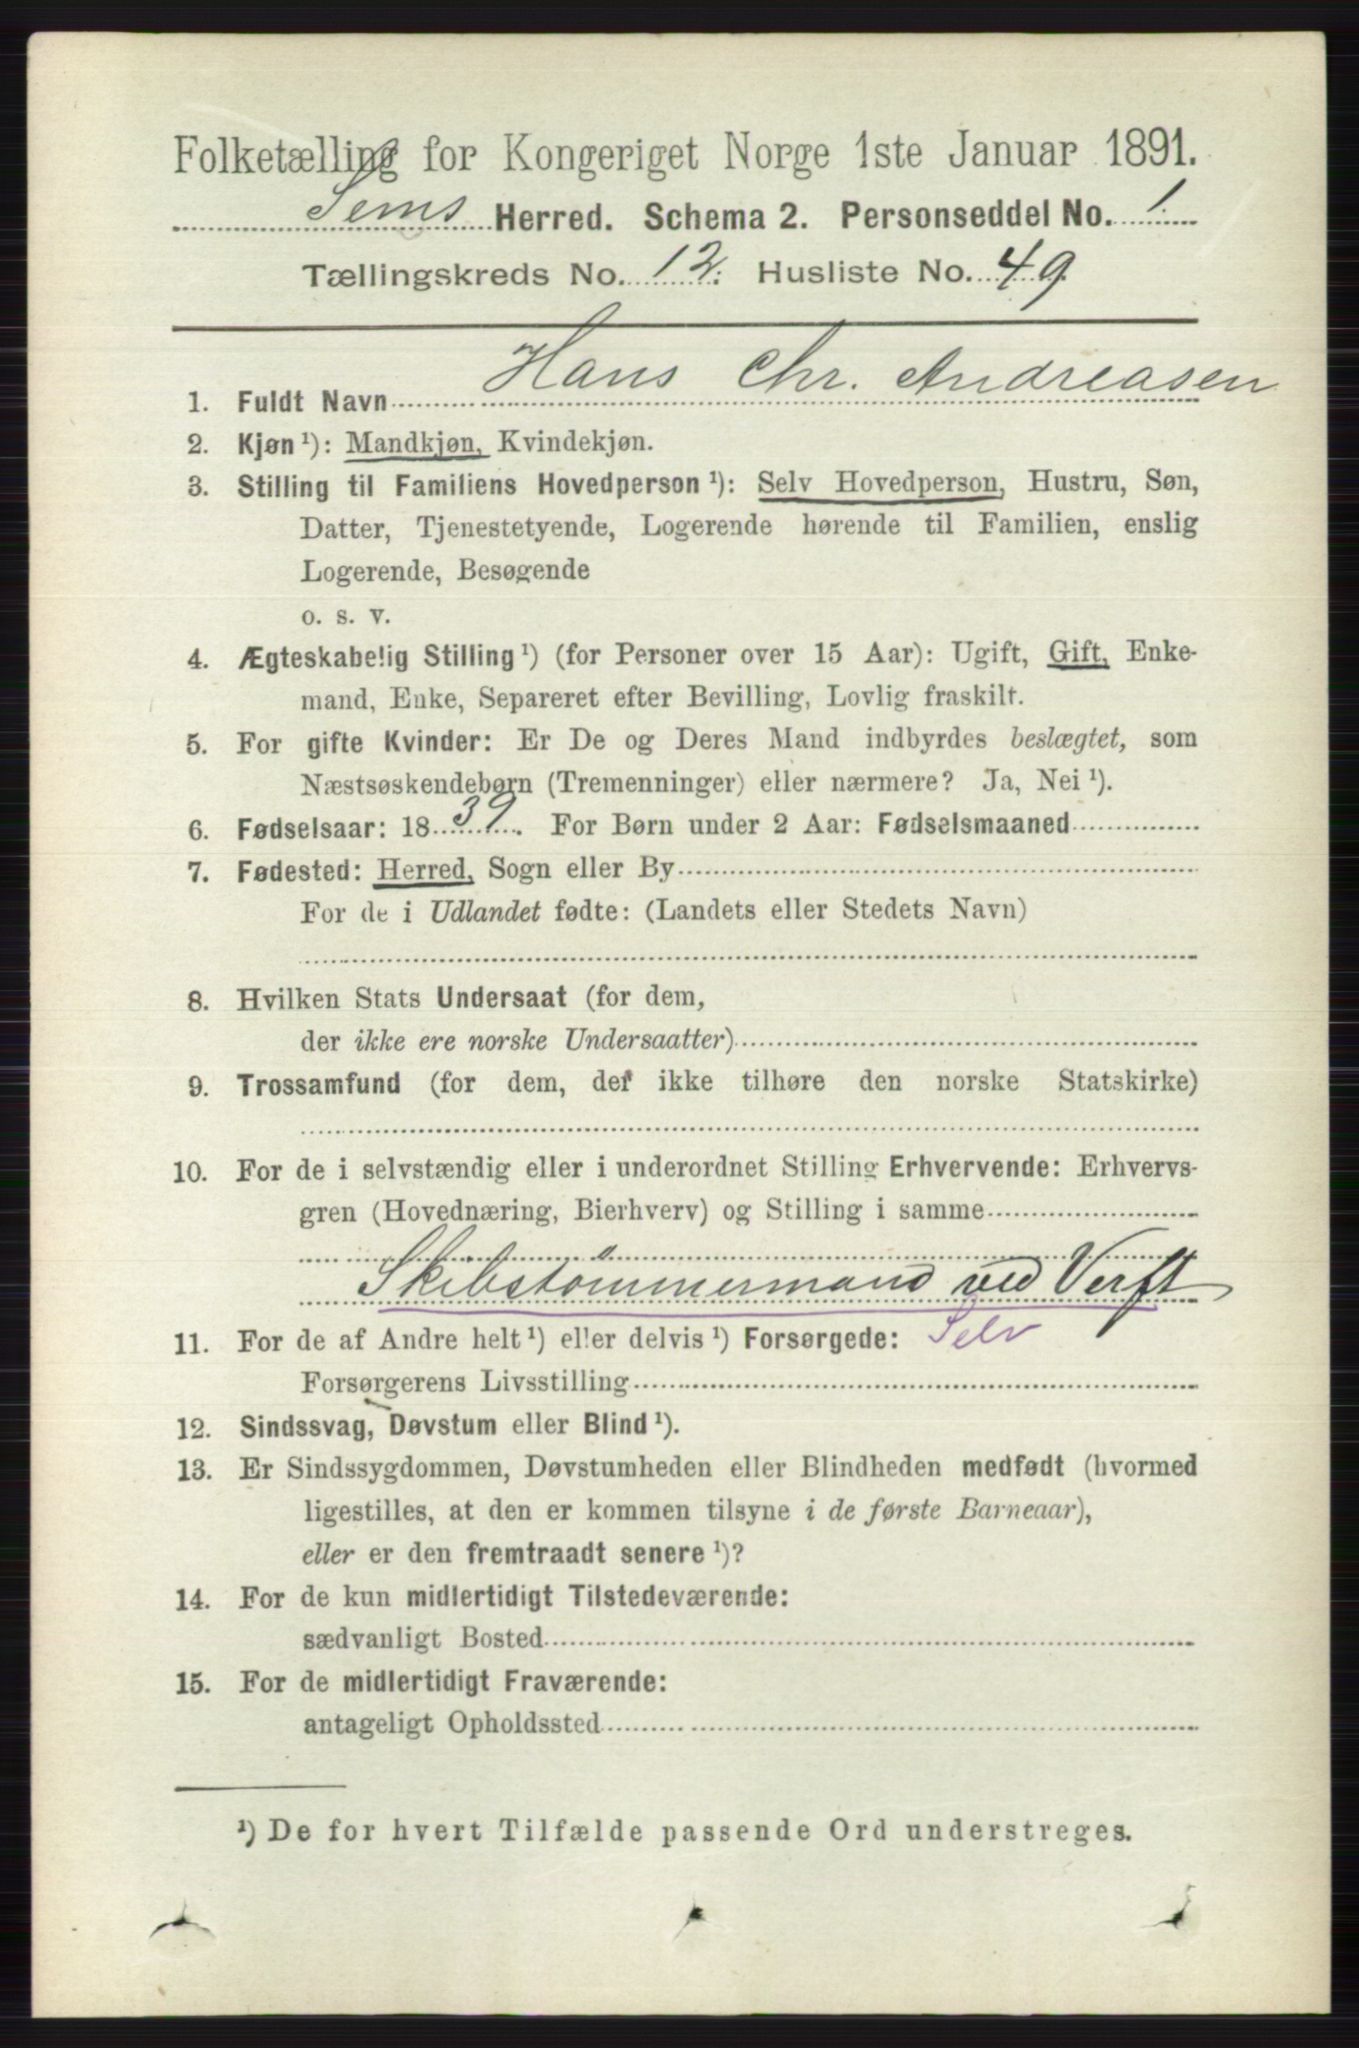 Folketælling for Kongeriget Norge 1ste Januar 1891.
Sems Herred. Schema 2. Personseddel No. 1.
Tællingskreds No. 12. Husliste No. 49.
1. Fuldt Navn Hans Chr. Andreasen
2. Kjøn ¹): Mandkjøn, Kvindekjøn.
3. Stilling til Familiens Hovedperson ¹): Selv Hovedperson, Hustru, Søn,
Datter, Tjenestetyende, Logerende hørende til Familien, enslig
Logerende, Besøgende
o. s. v.
4. Ægteskabelig Stilling ¹) (for Personer over 15 Aar): Ugift, Gift, Enke-
mand, Enke, Separeret efter Bevilling, Lovlig fraskilt.
5. For gifte Kvinder: Er De og Deres Mand indbyrdes beslægtet, som
Næstsøskendebørn (Tremenninger) eller nærmere? Ja, Nei ¹).
6. Fødselsaar: 1839. For Børn under 2 Aar: Fødselsmaaned
7. Fødested: Herred, Sogn eller By
For de i Udlandet fødte: (Landets eller Stedets Navn)
8. Hvilken Stats Undersaat (for dem,
der ikke ere norske Undersaatter)
9. Trossamfund (for dem, der ikke tilhøre den norske Statskirke)
10. For de i selvstændig eller i underordnet Stilling Erhvervende: Erhvervs-
gren (Hovednæring, Bierhverv) og Stilling i samme
Skibstömmermand ved Verft
11. For de af Andre helt ¹) eller delvis ¹) Forsørgede: Selv
Forsørgerens Livsstilling
12. Sindssvag, Døvstum eller Blind ¹).
13. Er Sindssygdommen, Døvstumheden eller Blindheden medfødt (hvormed
ligestilles, at den er kommen tilsyne i de første Barneaar),
eller er den fremtraadt senere ¹)?
14. For de kun midlertidigt Tilstedeværende:
sædvanligt Bosted
15. For de midlertidigt Fraværende:
antageligt Opholdssted
¹) De for hvert Tilfælde passende Ord understreges.